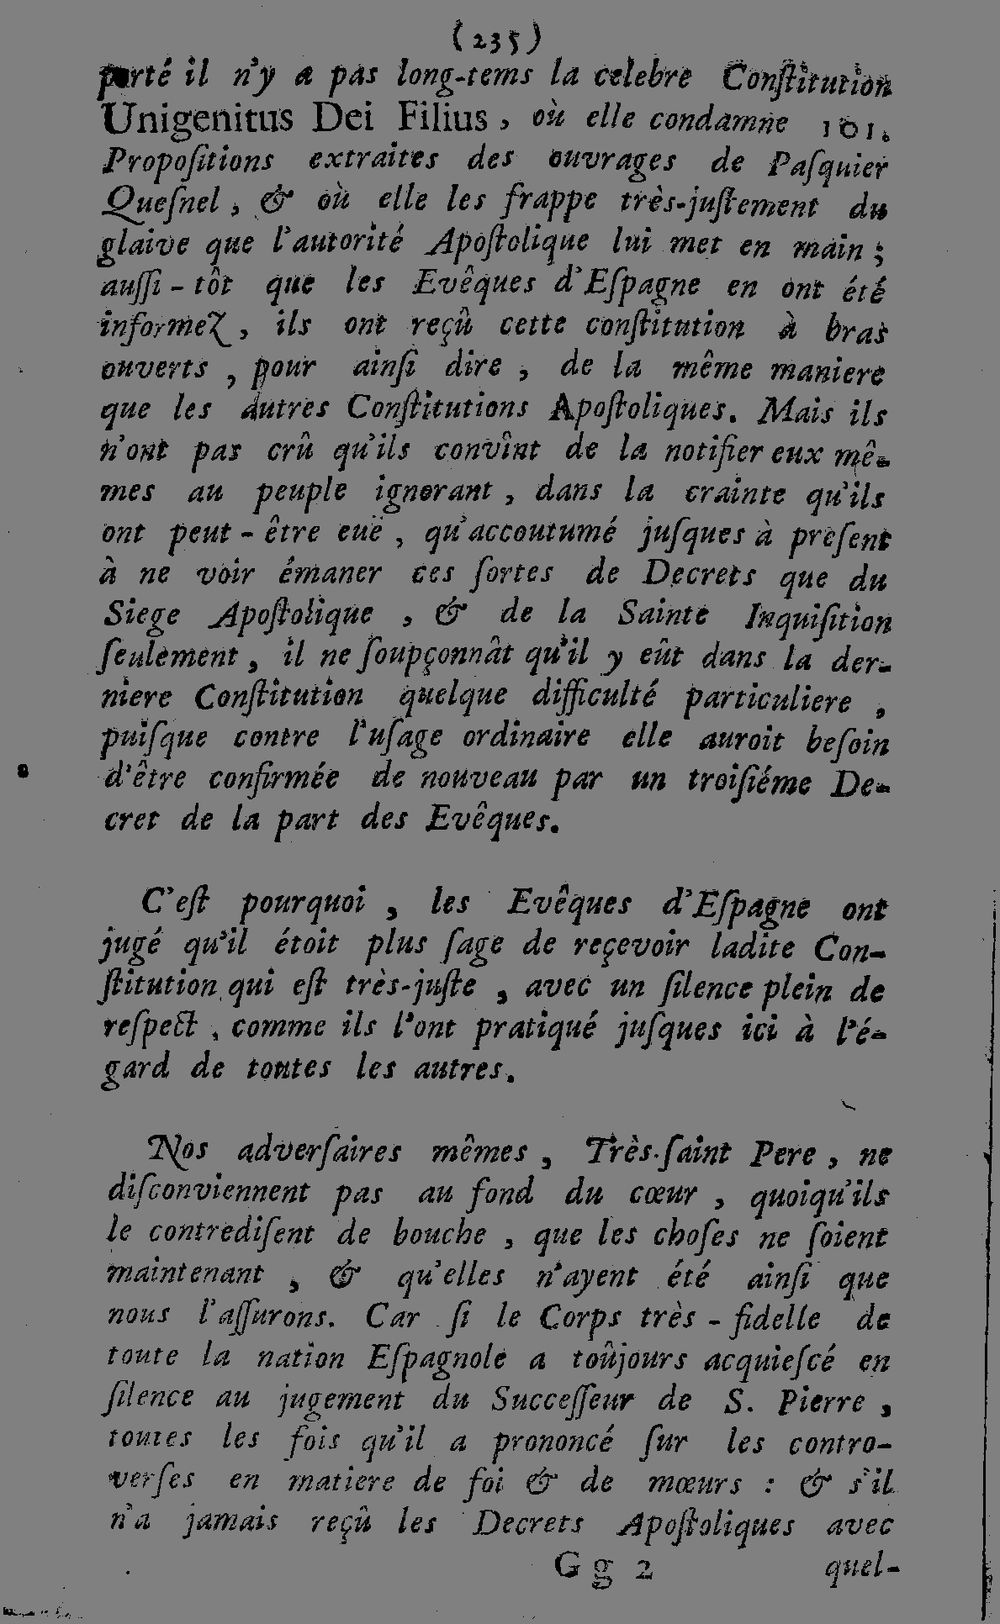 (235)
porté il n'y a pas long-tems la celebre Conſtitution
Unigenitus Dei Filius, où elle condamne 101.
Propoſitions extraites des ouvrages de Paſquier
Queſnel, & où elle les frappe très-juſtement du
glaive que l'autorité Apoſtolique lui met en main;
auſſi-tôt que les Evêques d'Eſpagne en ont été
informez, ils ont reçû cette conſtitution à bras
ouverts, pour ainſi dire, de la même maniere
que les autres Conſtitutions Apoſtoliques. Mais ils
n'ont pas crû qu'ils convînt de la notifier eux mê-
mes au peuple ignorant, dans la crainte qu'ils
ont peut-être euë, qu'accoutumé juſques à preſent
à ne voir émaner ces ſortes de Decrets que du
Siege Apoſtolique, & de la Sainte Inquiſition
ſeulement, il ne ſoupçonnât qu'il y eût dans la der-
niere Conſtitution quelque difficulté particuliere,
puiſque contre l'uſage ordinaire elle auroit beſoin
d'être confirmée de nouveau par un troiſiéme De-
cret de la part des Evêques.
C'eſt pourquoi, les Evêques d'Eſpagne ont
jugé qu'il étoit plus ſage de reçevoir ladite Con-
ſtitution qui eſt très-juſte, avec un ſilence plein de
reſpect, comme ils l'ont pratiqué juſques ici à l'é-
gard de toutes les autres.
Nos adverſaires mêmes, Très-ſaint Pere, ne
diſconviennent pas au fond du cœur, quoiqu'ils
le contrediſent de bouche, que les choſes ne ſoient
maintenant, & qu'elles n'ayent été ainſi que
nous l'aſſurons. Car ſi le Corps très-fidelle de
toute la nation Eſpagnole a toûjours acquieſcé en
ſilence au jugement du Succeſſeur de S. Pierre,
toutes les fois qu'il a prononcé ſur les contro-
verſes en matiere de foi & de mœurs : & s'il
n'a jamais reçû les Decrets Apoſtoliques avec
Gg 2 quel-